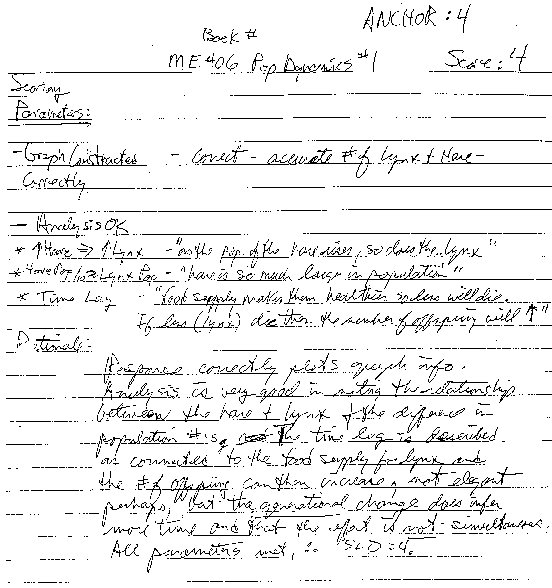 ANCHOR : 4
Book #
ME406 Pop Dynamics #1 Score : 4
Scoring
Parameters:
- Graph Constructed - correct - accurate # of lynx + Hare -
Correctly
- Analysis OK
* ↑Hare ⇒ ↑Lynx - "as the pop. of the hare rises, so does the lynx"
* Hare Pop Lynx Pop - "hare is so much large in population"
* Time Lag - "food supply makes them healthier so less will die.
If less (lynx) die then the number of offspring will ↑"
Rationale:
Response correctly plots graph info.
Analysis is very good in noting the relationship
between the hare + lynx + the difference in
population #'s. The time lag is described
as connected to the food supply for lynx and
the # of offspring can then increase, not elegant
perhaps, but the generational change does infer
more time and that the effect is not simultaneous.
All parameters met, ∴ = 4.